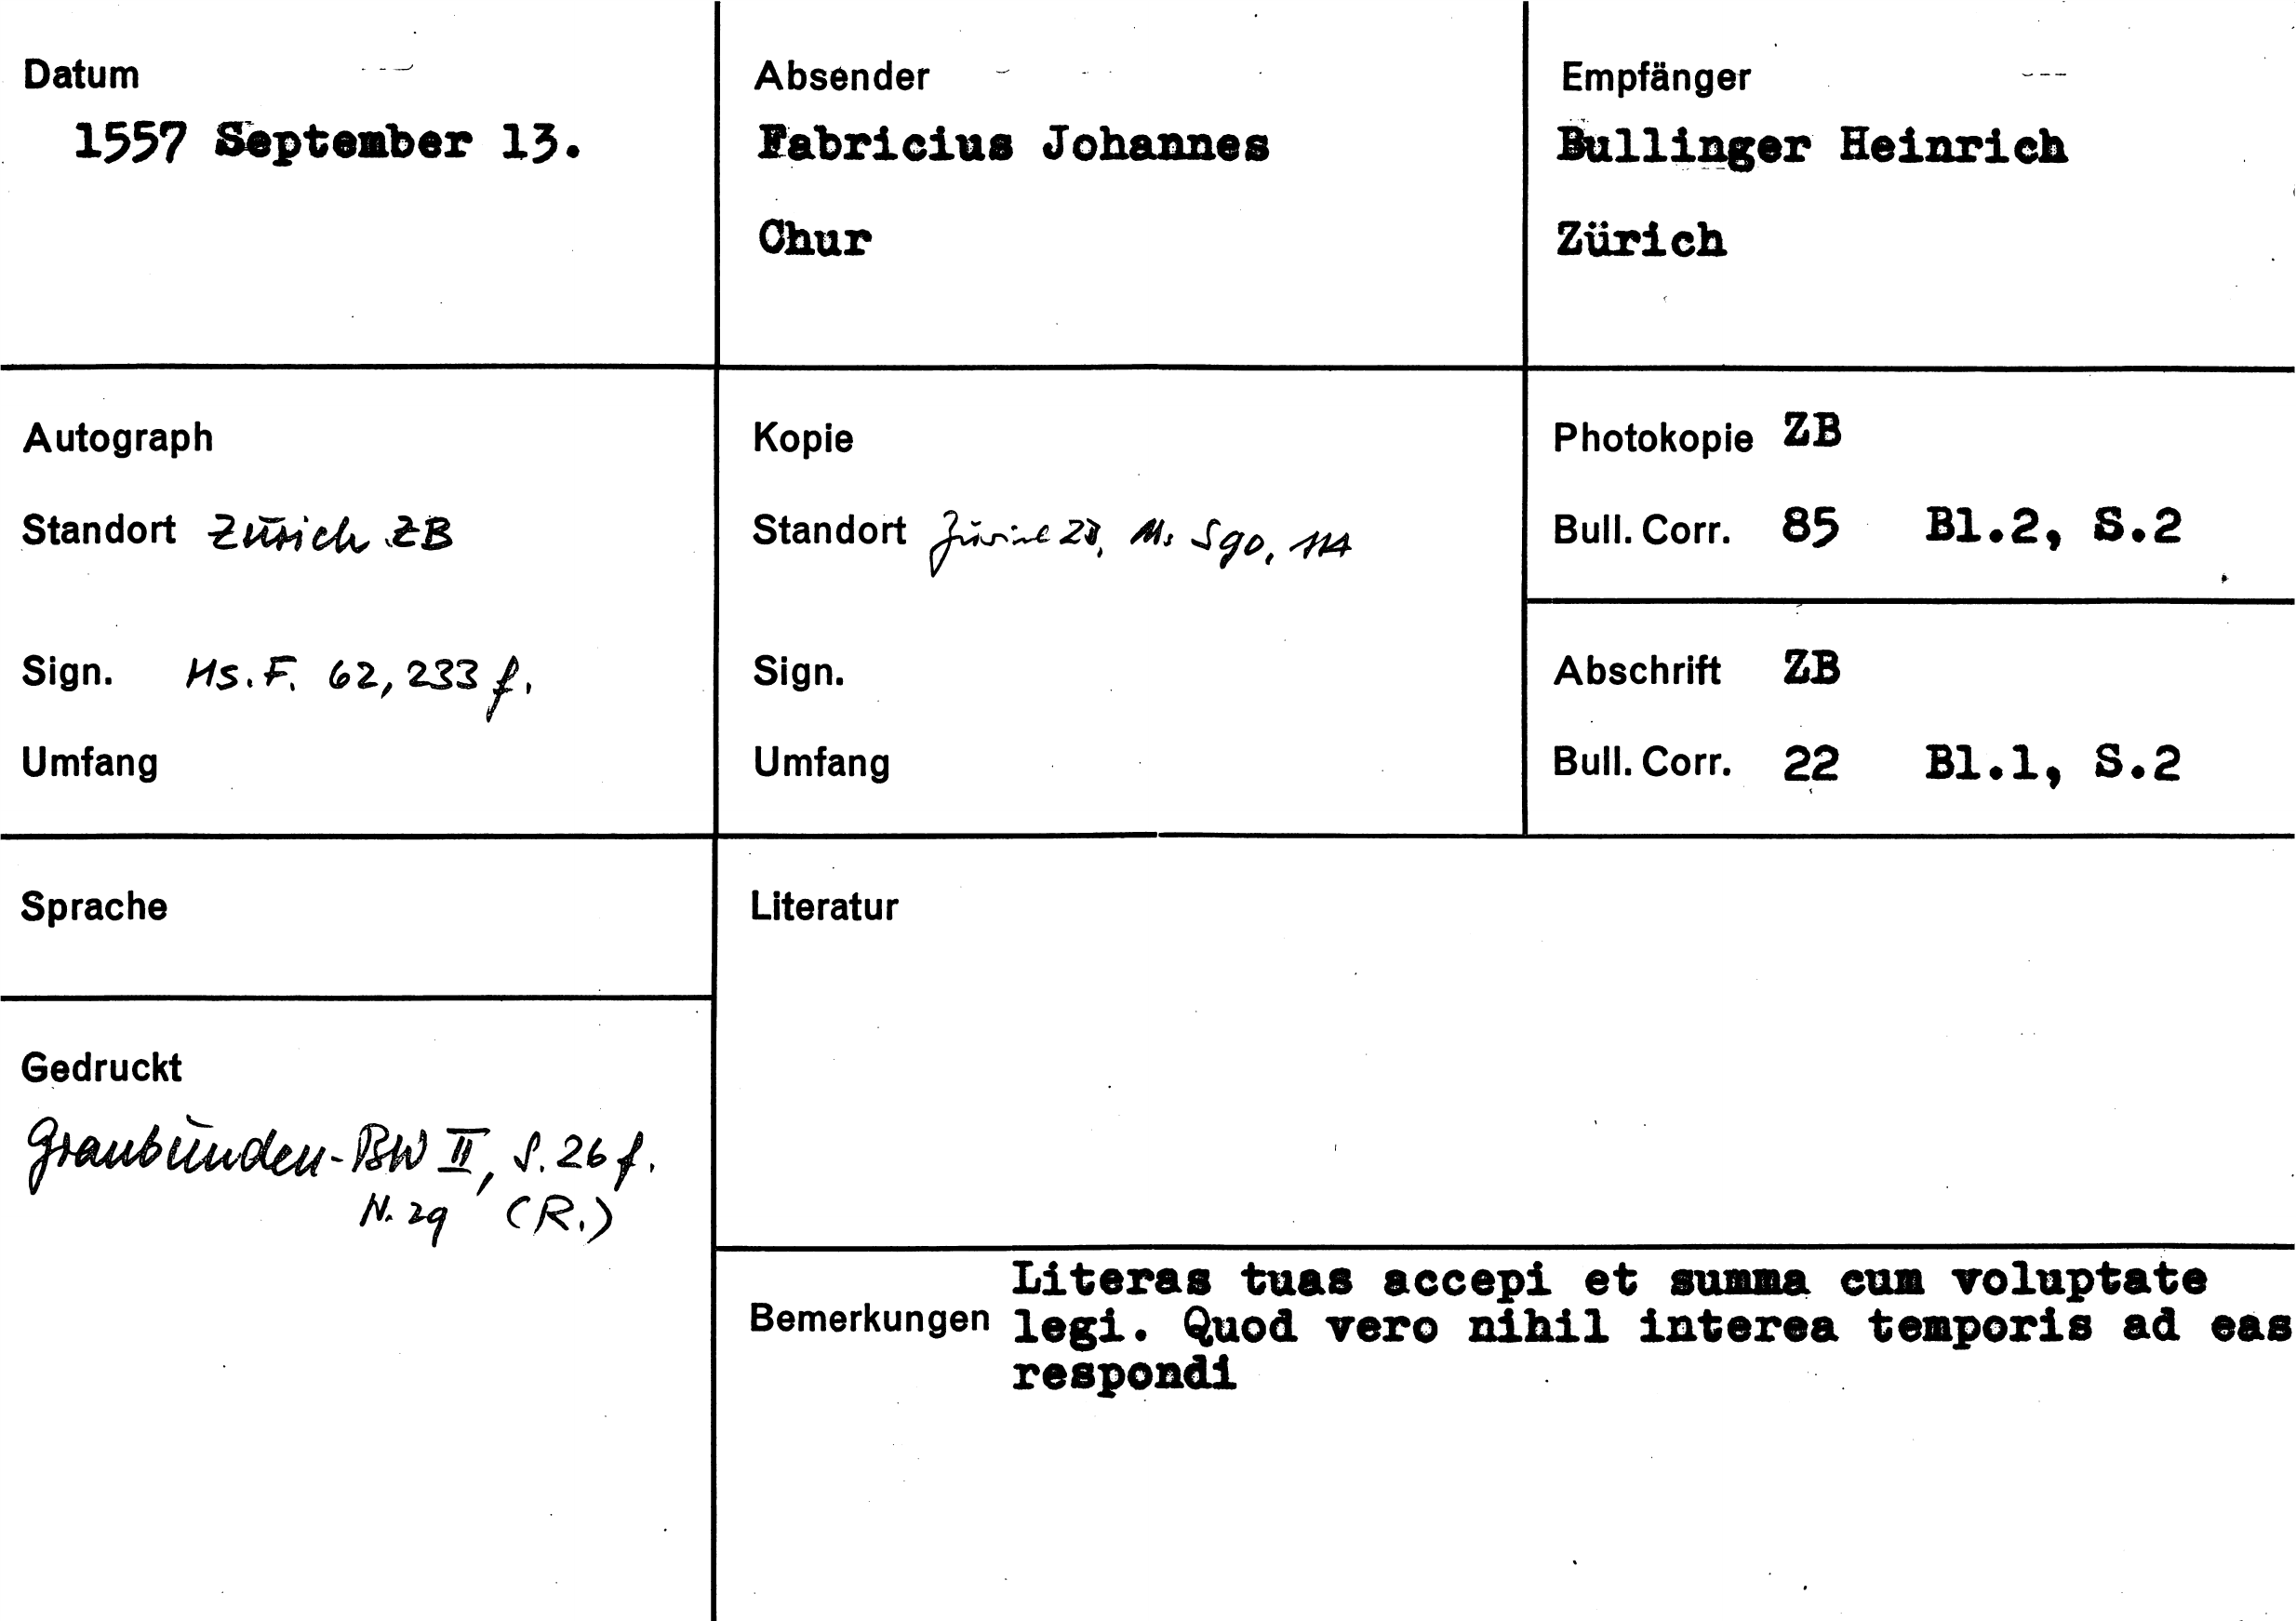 Datum
1557 September 13.
Absender
Fabricius Johannes
Chur
Empfänger
Bullinger Heinrich
Zürich
Autograph
Standort Zürich ZB
Sign. Ms. F. 62, 233 f.
Umfang
Kopie
Standort ZB, Ms S90, 114
Sign.
Umfang
Photokopie ZB
Bull. Corr. 85 Bl.2, S.2
Abschrift ZB
Bull. Corr. 22 Bl.1, S.2
Sprache
Gedruckt
Graubünden-BW II, S. 26 f.
N. 29 (R.)
Literatur
Bemerkungen
Literas tuas accepi et summa cum voluptate
legi. Quod vero nihil interea temporis ad eas
respondi